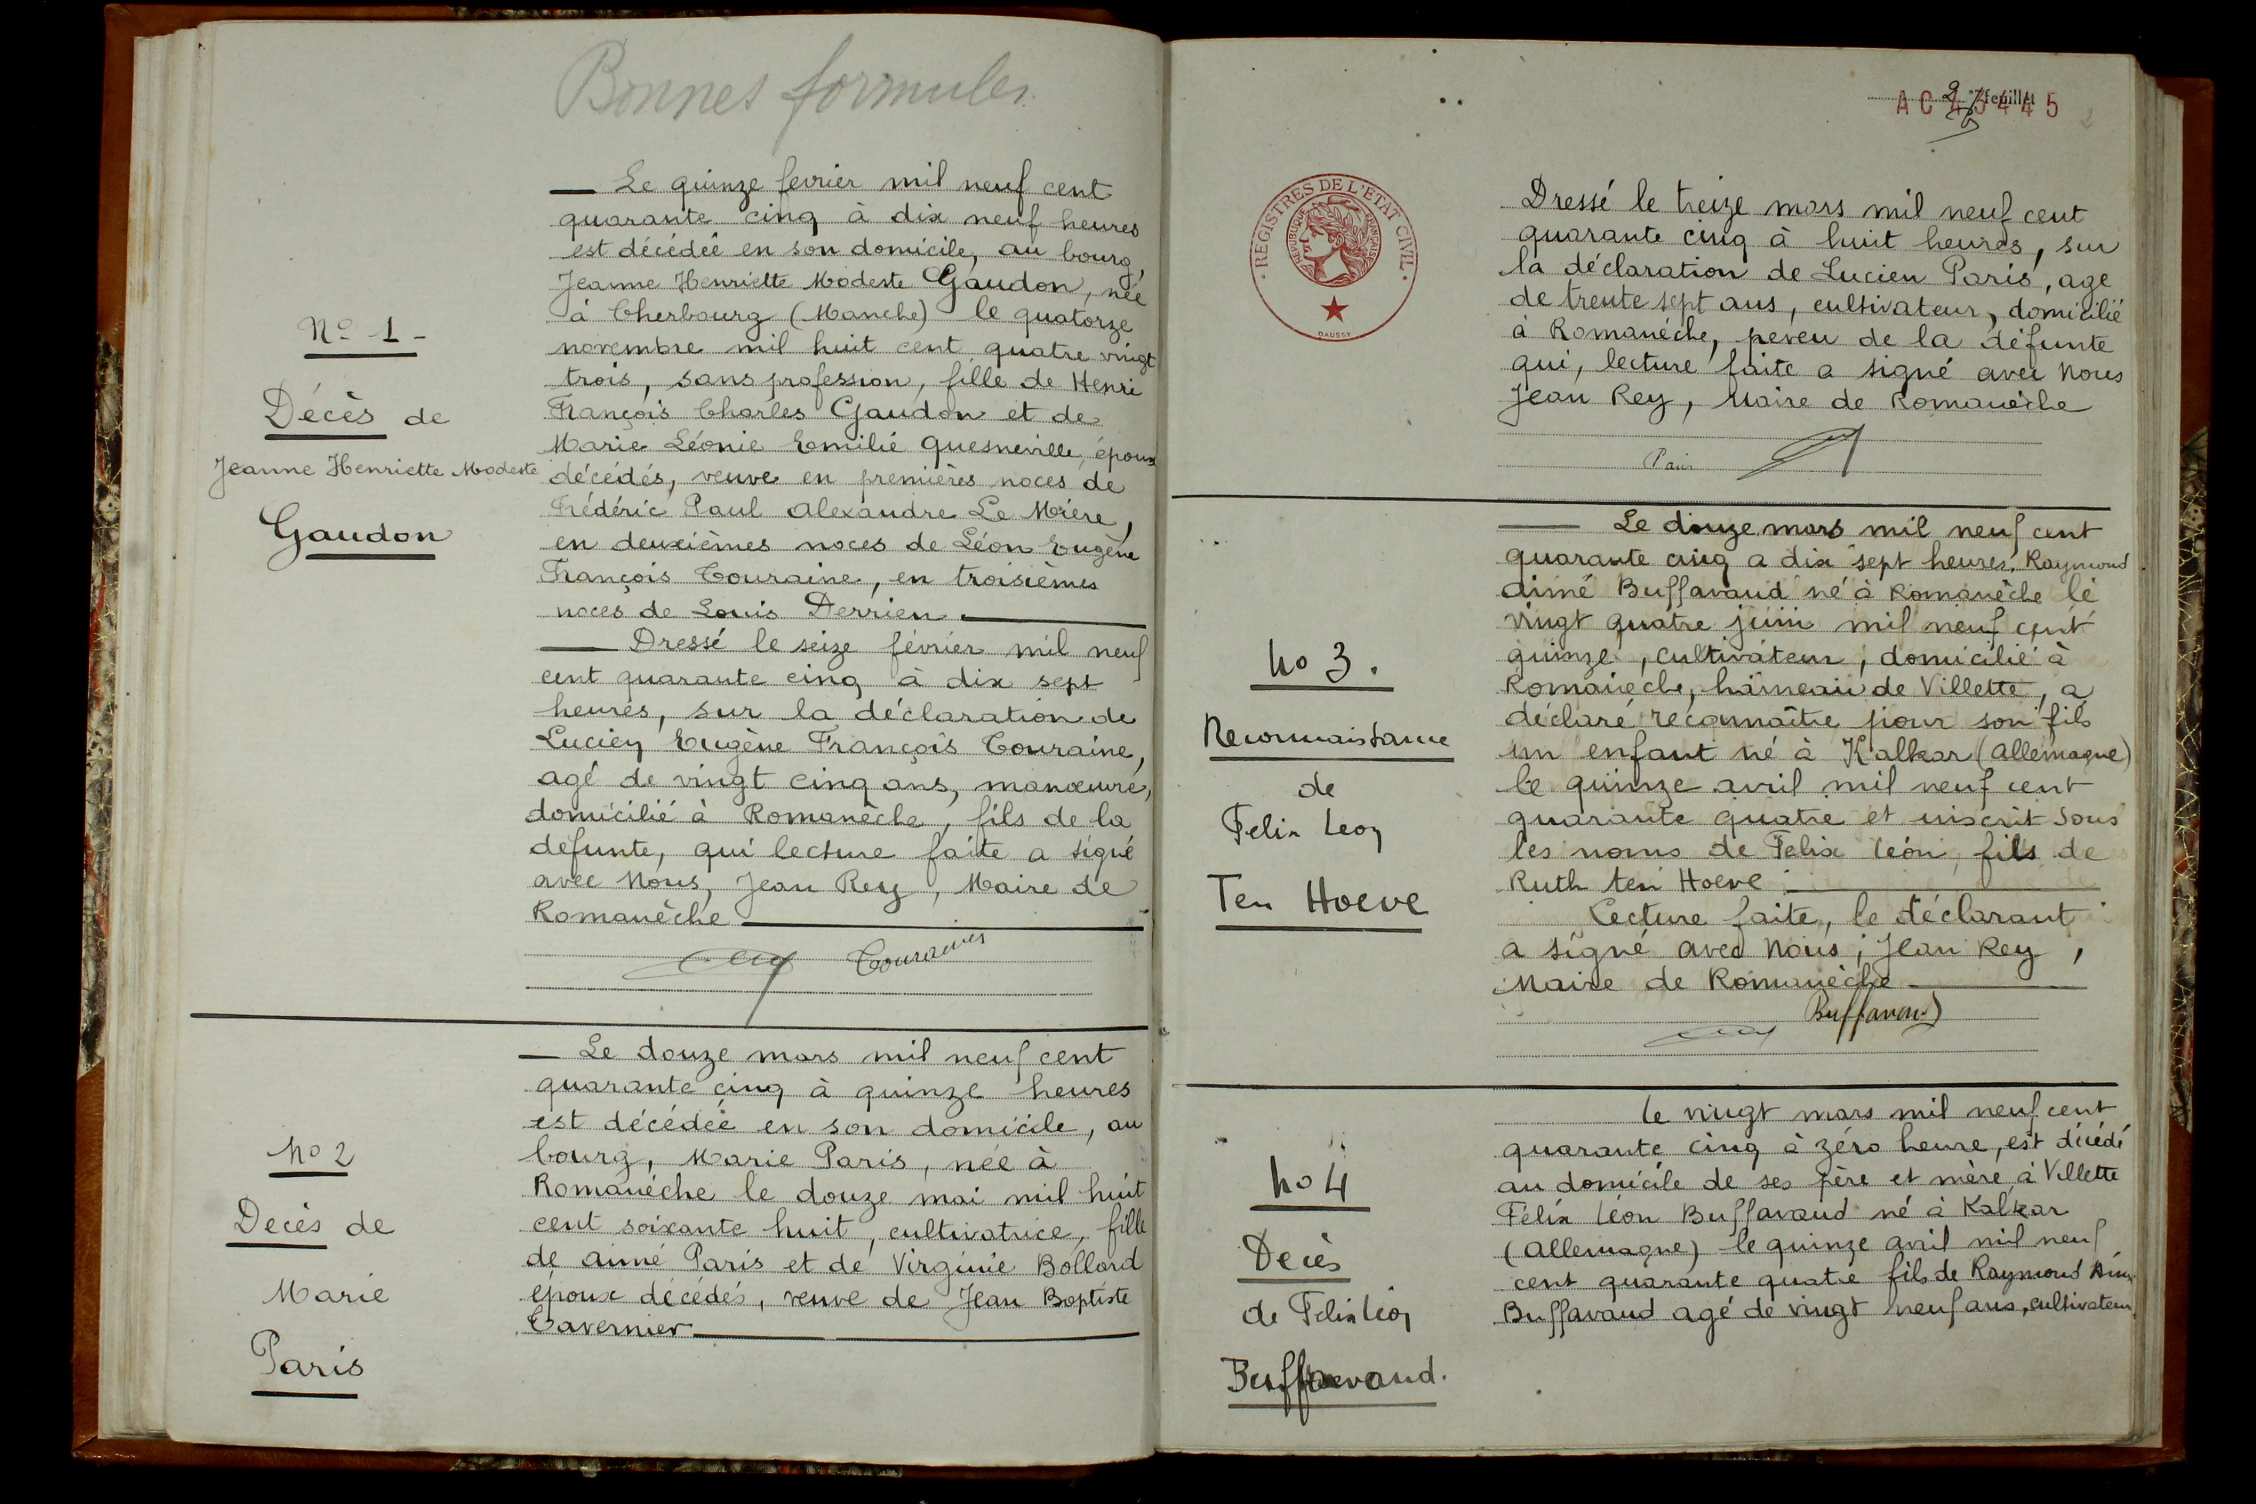 Bonnes formules
Le quinze fevrier mil neuf cent
quarante cinq à dix neuf heures
est décédée en son domicile, au bourg,
Jeanne Henriette Modeste Gaudon, née
à Cherbourg (Manche) le quatorze
novembre mil huit cent quatre vingt
trois, sans profession, fille de Henri
François Charles Gaudon et de
Marie Léonie Emilie Quesneville, époux
décédés, veuve en premières noces de
Frédéric Paul Alexandre Le Mière,
en deuxièmes noces de Léon Eugène
François Touraine, en troisièmes
noces de Louis Derrien
Dressé le seize février mil neuf
cent quarante cinq à dix sept
heures, sur la déclaration de
Lucien Eugène François Touraine,
agé de vingt cinq ans, manœuvre,
domicilié à Romanèche, fils de la
défunte, qui lecture faite a signé
avec Nous, Jean Rey, Maire de
Romanèche
Touraine
N° 1 -
Décès de
Jeanne Henriette Modeste
Gaudon
Le douze mars mil neuf cent
quarante cinq à quinze heures
est décédée en son domicile, au
bourg, Marie Paris, née à
Romanèche le douze mai mil huit
cent soixante huit, cultivatrice, fille
de aimé Paris et de Virginie Bollard
époux décédés, veuve de Jean Baptiste
Tavernier
No 2
Decès de
Marie
Paris
2 feuillet
AC 43445
REGISTRES DE L'ETAT CIVIL
REPUBLIQUE FRANÇAISE
DAUSSY
Dressé le treize mars mil neuf cent
quarante cinq à huit heures, sur
la déclaration de Lucien Paris, age
de trente sept ans, cultivateur, domicilié
à Romanèche, neveu de la défunte
qui, lecture faite a signé avec Nous
Jean Rey, Maire de Romanèche
Paris
Le douze mars mil neuf cent
quarante cinq a dix sept heures, Raymond
aimé Buffavand né à Romanèche le
vingt quatre juin mil neuf cent
quinze, cultivateur, domicilié à
Romanèche, hameau de Villette, a
déclaré reconnaître pour son fils
un enfant né à Kalkar (Allemagne)
le quinze avril mil neuf cent
quarante quatre et inscrit sous
les noms de Felix Léon, fils de
Ruth ten Hoeve
Lecture faite, le déclarant
a signé avec Nous, Jean Rey,
Maire de Romanèche
Buffavand
No 3.
Reconnaissance
de
Felix Leon
Ten Hoeve
le vingt mars mil neuf cent
quarante cinq à zéro heure, est décédé
au domicile de ses père et mère à Villette
Félix Léon Buffavand né à Kalkar
(Allemagne) le quinze avril mil neuf
cent quarante quatre fils de Raymond Aimé
Buffavand agé de vingt neuf ans, cultivateur,
No 4
Decès
de Felix Léon
Buffavand.